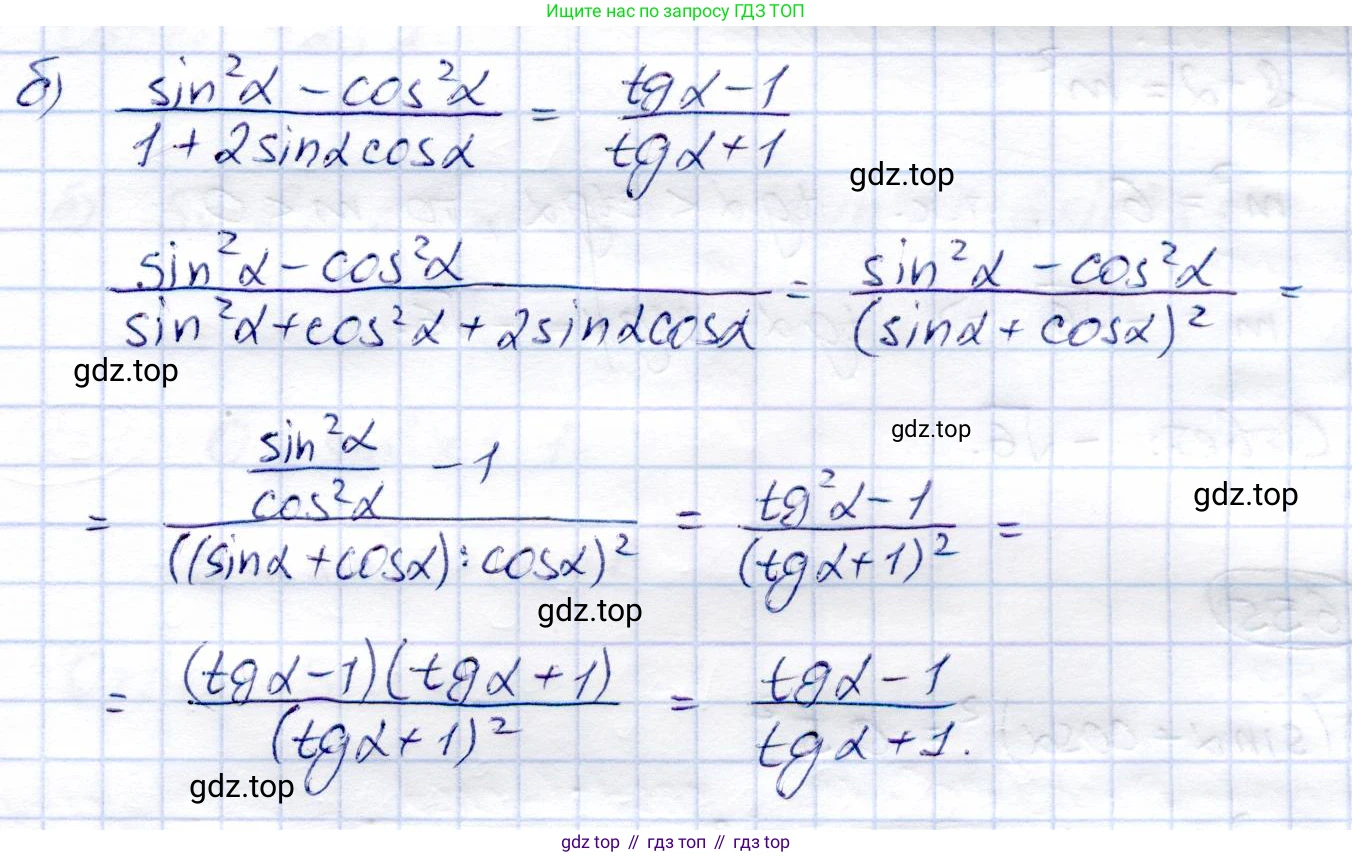 Ищите нас по запросу ГДЗ ТОП
б) (sin²α – cos²α)/(1 + 2sinα cosα) = (tgα – 1)/(tgα + 1)
gdz.top
(sin²α – cos²α)/(sin²α + cos²α + 2sinα cosα) = (sin²α – cos²α)/(sinα + cosα)² =
gdz.top
gdz.top
= (sin²α/cos²α – 1)/((sinα + cosα) : cosα)² = (tg²α – 1)/(tgα + 1)² =
gdz.top
gdz.top
= (tgα – 1)(tgα + 1)/(tgα + 1)² = (tgα – 1)/(tgα + 1).
gdz.top
gdz top // гдз топ // гдз top